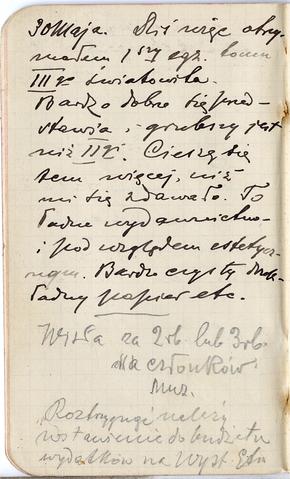 30 Maja. Dziś więc otrzy-
małem 1szy egz. tomu
III go Światowita.
Bardzo dobrze się przed-
stawia, i grubszy jest
niż II gi. Cieszę się
tem więcej, niż
mi się zdawało. To
ładne wydawnictwo
i pod względem estetycz-
nym. Bardzo czysty druk
ładny papier etc.
Wisła za 2rb. lub 3rb.
dla członków
Muz.
Rozstrzygnąć należy
wstawienie do budżetu
wydatków na Wyst. Etn